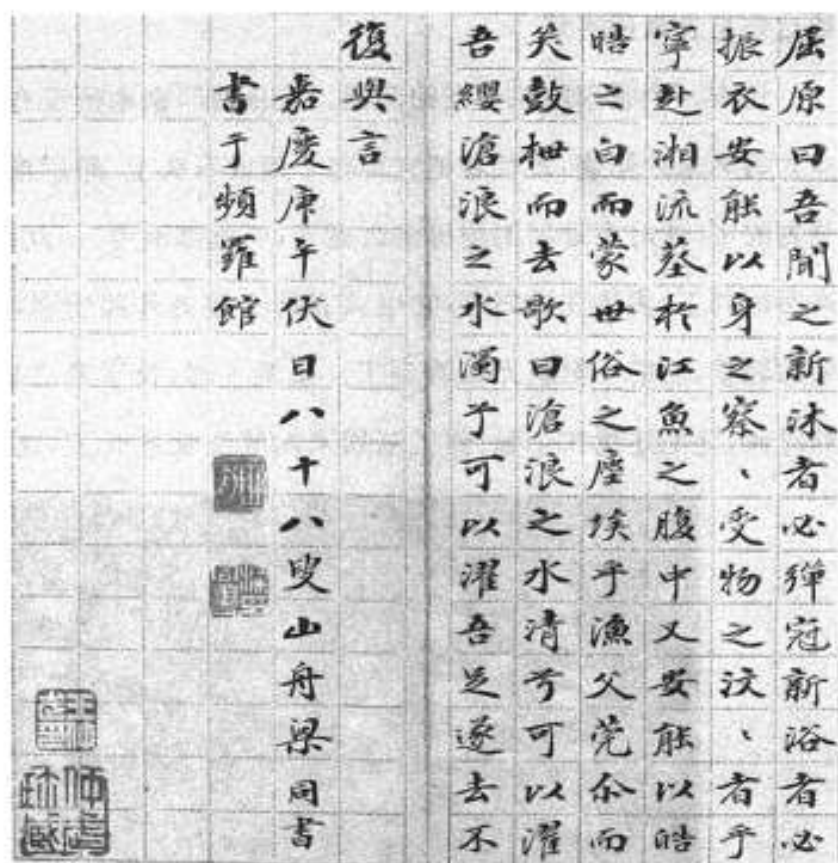 屈原曰吾聞之新沐者必彈冠新浴者必
振衣安能以身之察、受物之汶、者乎
寧赴湘流葬於江魚之腹中又安能以皓
皓之白而蒙世俗之塵埃乎漁父莞尒而
笑鼓枻而去歌曰滄浪之水清兮可以濯
吾纓滄浪之水濁兮可以濯吾足遂去不
復與言
嘉慶庚午伏日八十八叟山舟梁同書
書于頻羅館